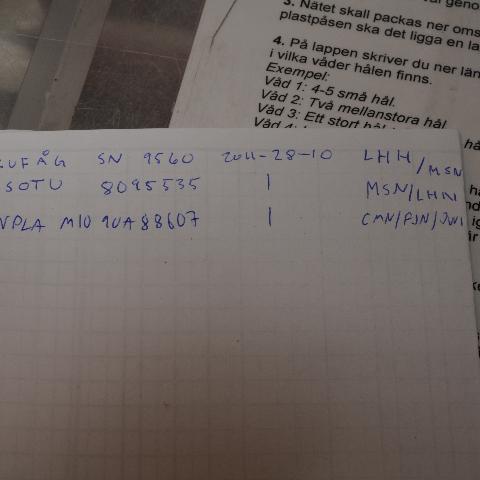 3. Nätet skall packas ner oms
plastpåsen ska det ligga en la
4. På lappen skriver du ner län
i vilka våder hålen finns.
Exempel:
Våd 1: 4-5 små hål.
Våd 2: Två mellanstora hål
Våd 3: Ett stort hål
SN 9560 2011-28-10 LHH/MSN
SOTU 8095535 1 MSN/LHN
VPLA M10 90A88607 1